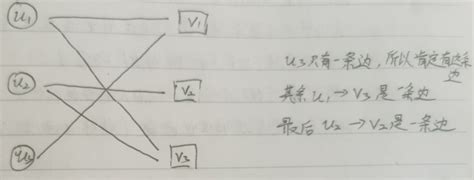 u₁
v₁
u₂
v₂
u₃
v₃
u₃只有一条边，所以肯定有这条
边
其余 u₁→v₃是一条边
最后 u₂→v₂是一条边